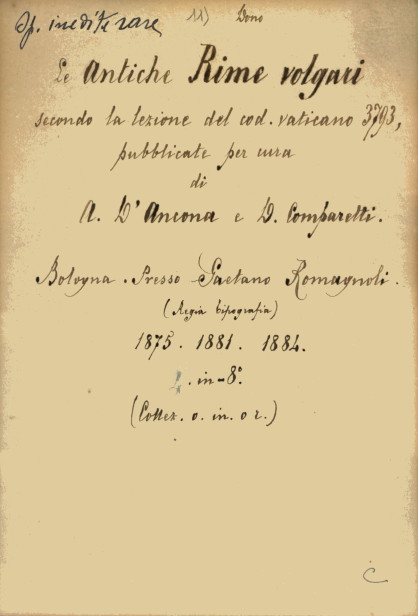 Op. inedite rare
11) Dono
Le Antiche Rime volgari
secondo la lezione del cod. vaticano 3793,
pubblicate per cura
di
A. D'Ancona e D. Comparetti.
Bologna. Presso Gaetano Romagnoli.
(Regia tipografia)
1875. 1881. 1884.
. in-8°.
(Collez. o. in. o r.)
C